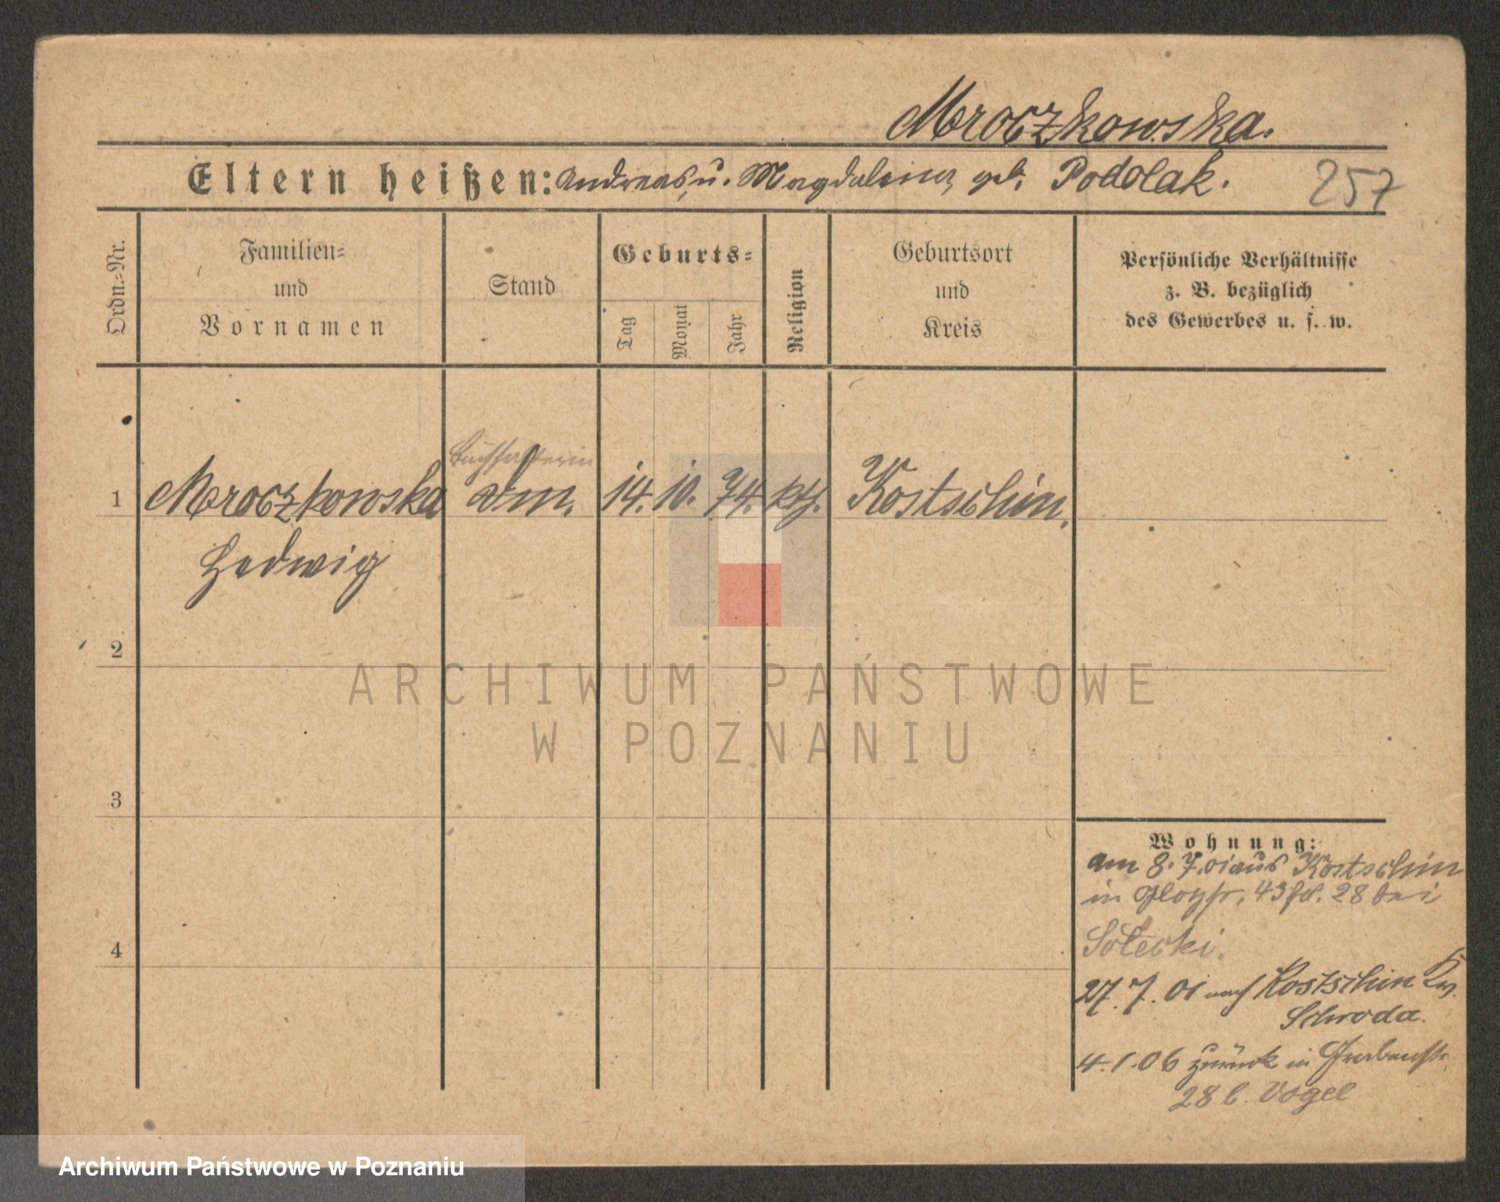 Mroczkowska.
Eltern heißen: Andreas u. Magdalena geb. Podolak.
257
Ordn.=Nr.
Familien=
und
Vornamen
Stand
Geburts=
Tag
Monat
Jahr
Religion
Geburtsort
und
Kreis
Persönliche Verhältnisse
z. B. bezüglich
des Gewerbes u. s. w.
Buchhalterin
1 Mroczkowska 14. 10. 74. kth. Kostschin.
Hedwig
2
3
4
Wohnung:
am 8. 7. 01 aus Kostschin
in 43 28 bei
Sotecki.
27. 7. 01 nach Kostschin Krs.
Schroda.
4. 1. 06 zurück in Grabenstr.
28 b. Vogel
ARCHIWUM PAŃSTWOWE
W POZNANIU
Archiwum Państwowe w Poznaniu